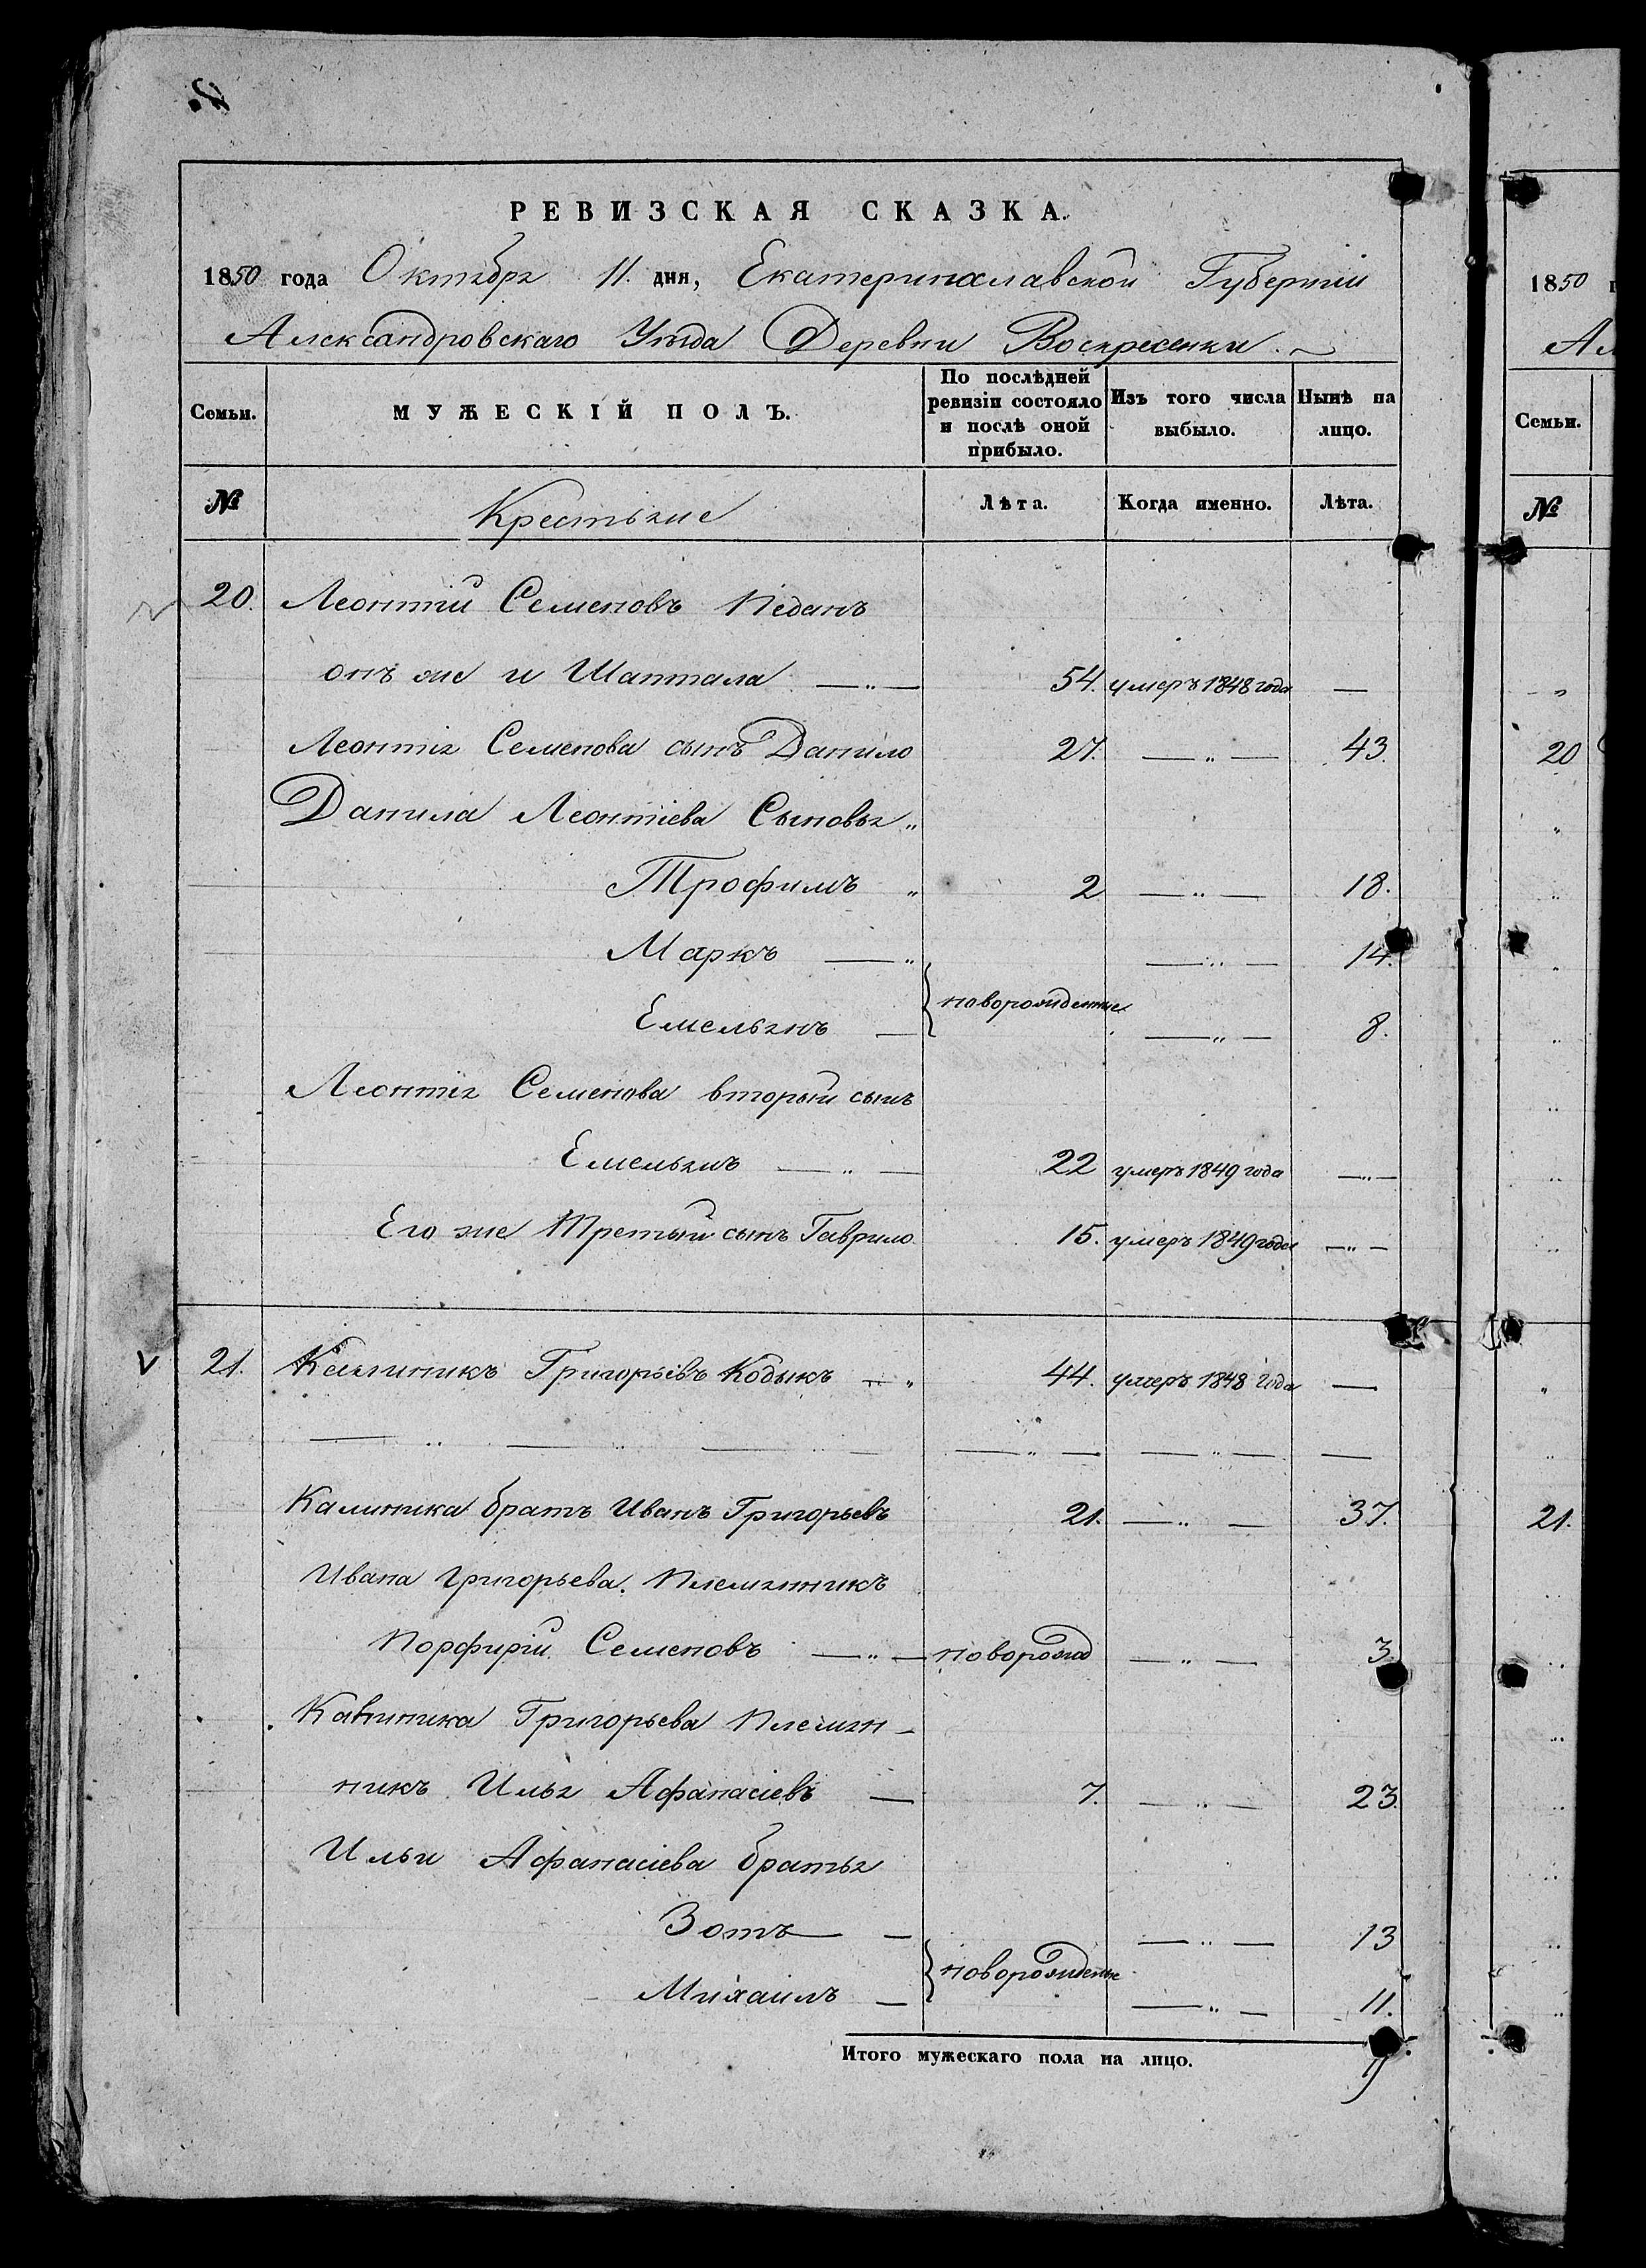 РЕВИЗСКАЯ СКАЗКА.
1850 года Октября 11. дня, Екатеринославской Губерніи
Александровскаго Уѣзда Деревни Воскресенки.
Семьи. МУЖЕСКІЙ ПОЛЪ. По послѣдней ревизіи состояло и послѣ оной прибыло. Изъ того числа выбыло. Нынѣ на лицо.
№ Крестьяне Лѣта. Когда именно. Лѣта.
20. Леонтій Семеновъ Педанъ
онъ же и Шаптала — " — 54. умеръ 1848 года —
Леонтія Семенова сынъ Данило 27. — " — 43.
Данила Леонтіева Сыновья "
Трофимъ " 2 — " — 18.
Маркъ — " — " — 14.
новорожденные
Емельянъ — — " — 8.
Леонтія Семенова вторый сынъ
Емельянъ — " — 22 умеръ 1849 года — " —
Его же Третый сынъ Гаврило 15. умеръ 1849 года — " —
21. Калиникъ Григорьевъ Кодыкъ — " 44. умеръ 1848 года —
— " — " — " — — " — — " — —
Калиника братъ Иванъ Григорьевъ 21. — " — 37.
Ивана Григорьева. Племянникъ
Порфирій Семеновъ — " — новорожд — " — 3.
Калиника Григорьева Племян-
никъ Илья Афанасіевъ — 7. — " — 23.
Ильи Афанасіева братья
Зотъ — — " — 13
новорожденные
Михаилъ — — " — 11.
Итого мужескаго пола на лицо. 9
1850
Ал
Семьи.
№
20
21.